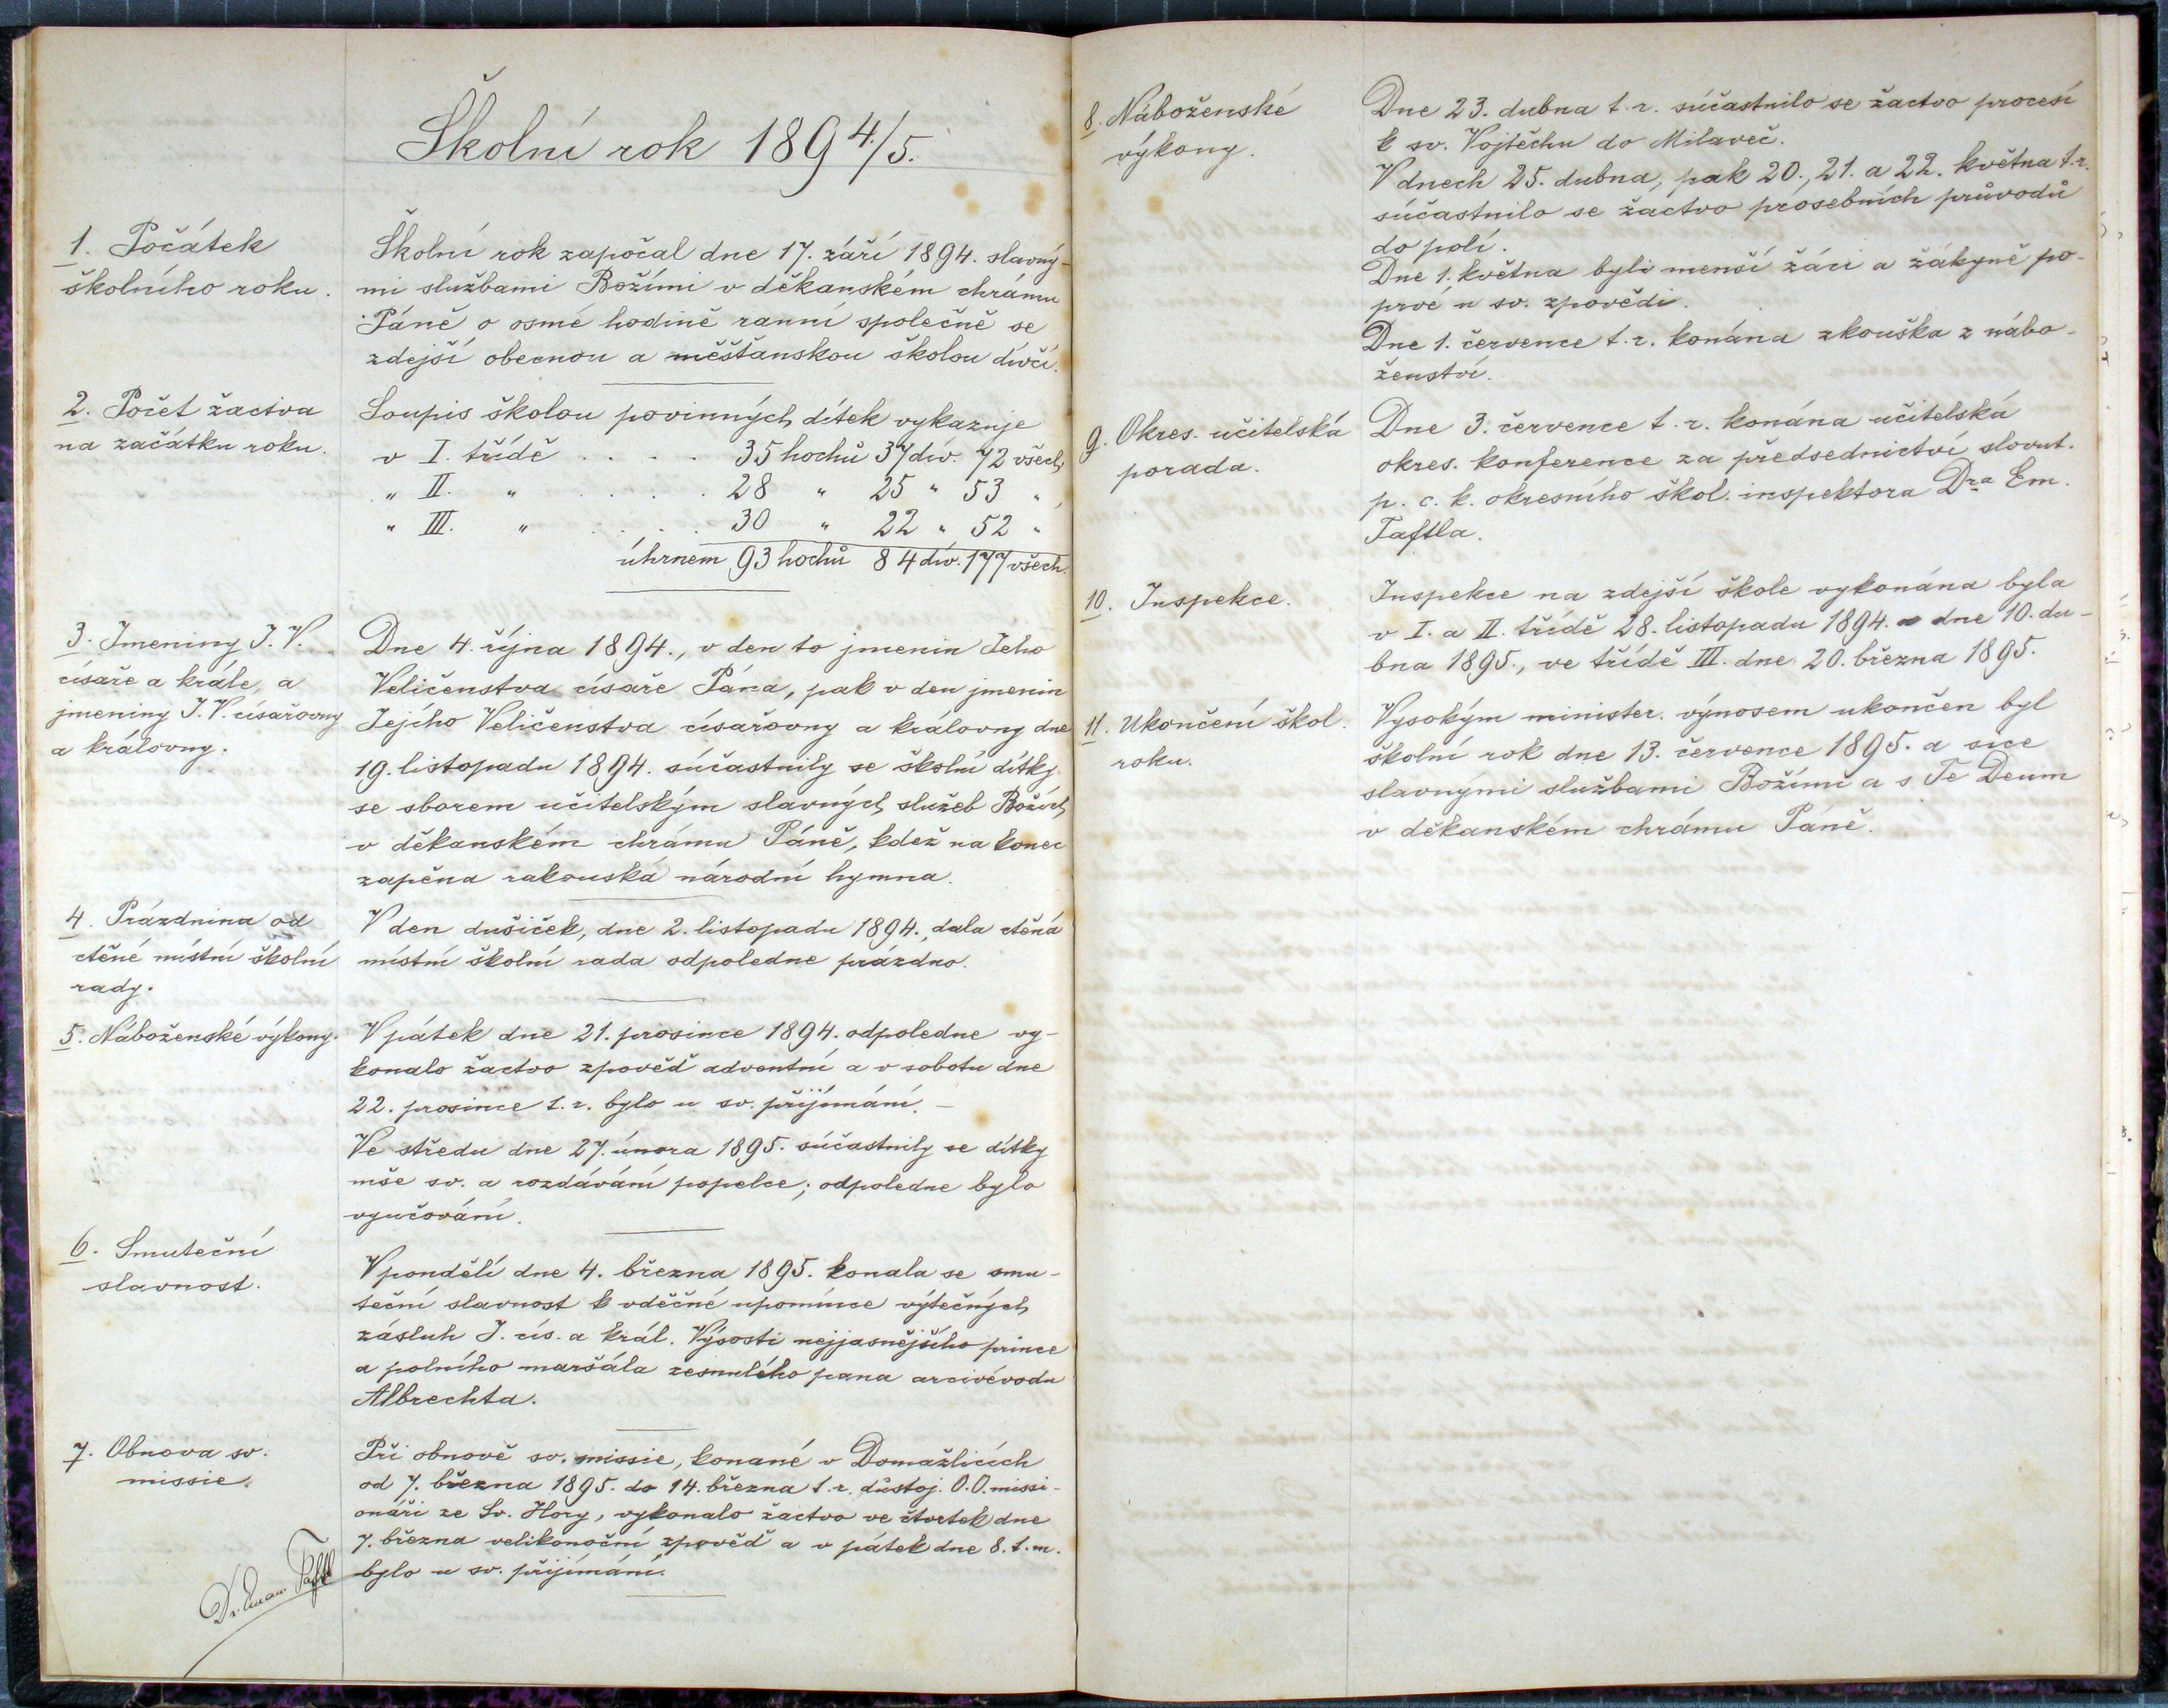 Školní rok 1894./5.
1. Počátek
školního roku.
Školní rok započal dne 17. září 1894. slavný-
mi službami Božími v děkanském chrámu
Páně o osmé hodině ranní společně se
zdejší obecnou a měšťanskou školou dívčí.
2. Počet žactva
na začátku roku.
Soupis školou povinných dítek vykazuje
v I. třídě . . . . 35 hochů 37 dív. 72 všech,
" II. " . . . . 28 " 25 " 53 ",
" III. " . . . . 30 " 22 " 52 "
úhrnem 93 hochů 84 dív. 177 všech.
3. Jmeniny J. V.
císaře a krále, a
jmeniny J. V. císařovny
a královny.
Dne 4. října 1894., v den to jmenin Jeho
Veličenstva císaře Pána, pak v den jmenin
Jejího Veličenstva císařovny a královny dne
19. listopadu 1894. súčastnily se školní dítky
se sborem učitelským slavných služeb Božích
v děkanském chrámu Páně, kdež na konec
zapěna rakouská národní hymna.
4. Prázdnina od
ctěné místní školní
rady.
V den dušiček, dne 2. listopadu 1894., dala ctěná
místní školní rada odpoledne prázdno.
5. Náboženské výkony.
V pátek dne 21. prosince 1894. odpoledne vy-
konalo žactvo zpověď adventní a v sobotu dne
22. prosince t. r. bylo u sv. přijímání. –
Ve středu dne 27. února 1895. súčastnily se dítky
mše sv. a rozdávání popelce; odpoledne bylo
vyučování.
6. Smuteční
slavnost.
V pondělí dne 4. března 1895. konala se smu-
teční slavnost k vděčné upomínce výtečných
zásluh J. cís. a král. Výsosti nejjasnějšího prince
a polního maršála zesnulého pana arcivévodu
Albrechta.
7. Obnova sv.
missie.
Při obnově sv. missie, konané v Domažlicích
od 7. března 1895. do 14. března t. r. důstoj. O.O. missi-
onáři ze Sv. Hory, vykonalo žactvo ve čtvrtek dne
7. března velikonoční zpověď a v pátek dne 8. t. m.
bylo u sv. přijímání.
Dr. Eman. Taftl
8. Náboženské
výkony.
Dne 23. dubna t. r. súčastnilo se žactvo procesí
k sv. Vojtěchu do Milaveč.
V dnech 25. dubna, pak 20., 21. a 22. května t. r.
súčastnilo se žactvo prosebních průvodů
do polí.
Dne 1. května byli menší žáci a žákyně po-
prvé u sv. zpovědi.
Dne 1. července t. r. konána zkouška z nábo-
ženství.
9. Okres. učitelská
porada.
Dne 3. července t. r. konána učitelská
okres. konference za předsednictví slovut.
p. c. k. okresního škol. inspektora Dra Em.
Taftla.
10. Inspekce.
Inspekce na zdejší škole vykonána byla
v I. a II. třídě 28. listopadu 1894. a dne 10. du-
bna 1895., ve třídě III. dne 20. března 1895.
11. Ukončení škol.
roku.
Vysokým minister. výnosem ukončen byl
školní rok dne 13. července 1895. a sice
slavnými službami Božími a s Te Deum
v děkanském chrámu Páně.